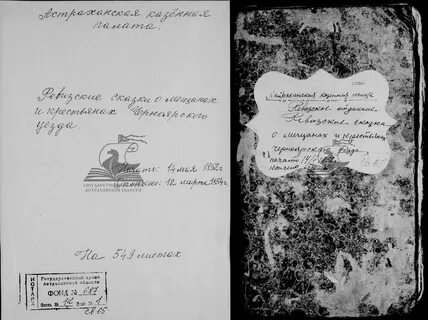 Астраханская казённая
палата.
Ревизские сказки о мещанах
и крестьянах Черноярского
уезда.
Начато: 14 мая 1858г.
Окончено: 12 марта
ГОСУДАРСТВЕННЫЙ
АСТРАХАНСКОЙ ОБЛАСТИ
На 549 листах
Государственный архив
Астраханской области
ФОНД № 687
Опись № 12
№ 1
св 65
Астраханская казенная палата
Ревизское отделение
Ревизские сказки
о мещанах и крестьянах
Черноярского уезда.
начато 14/V
кончено
св.65